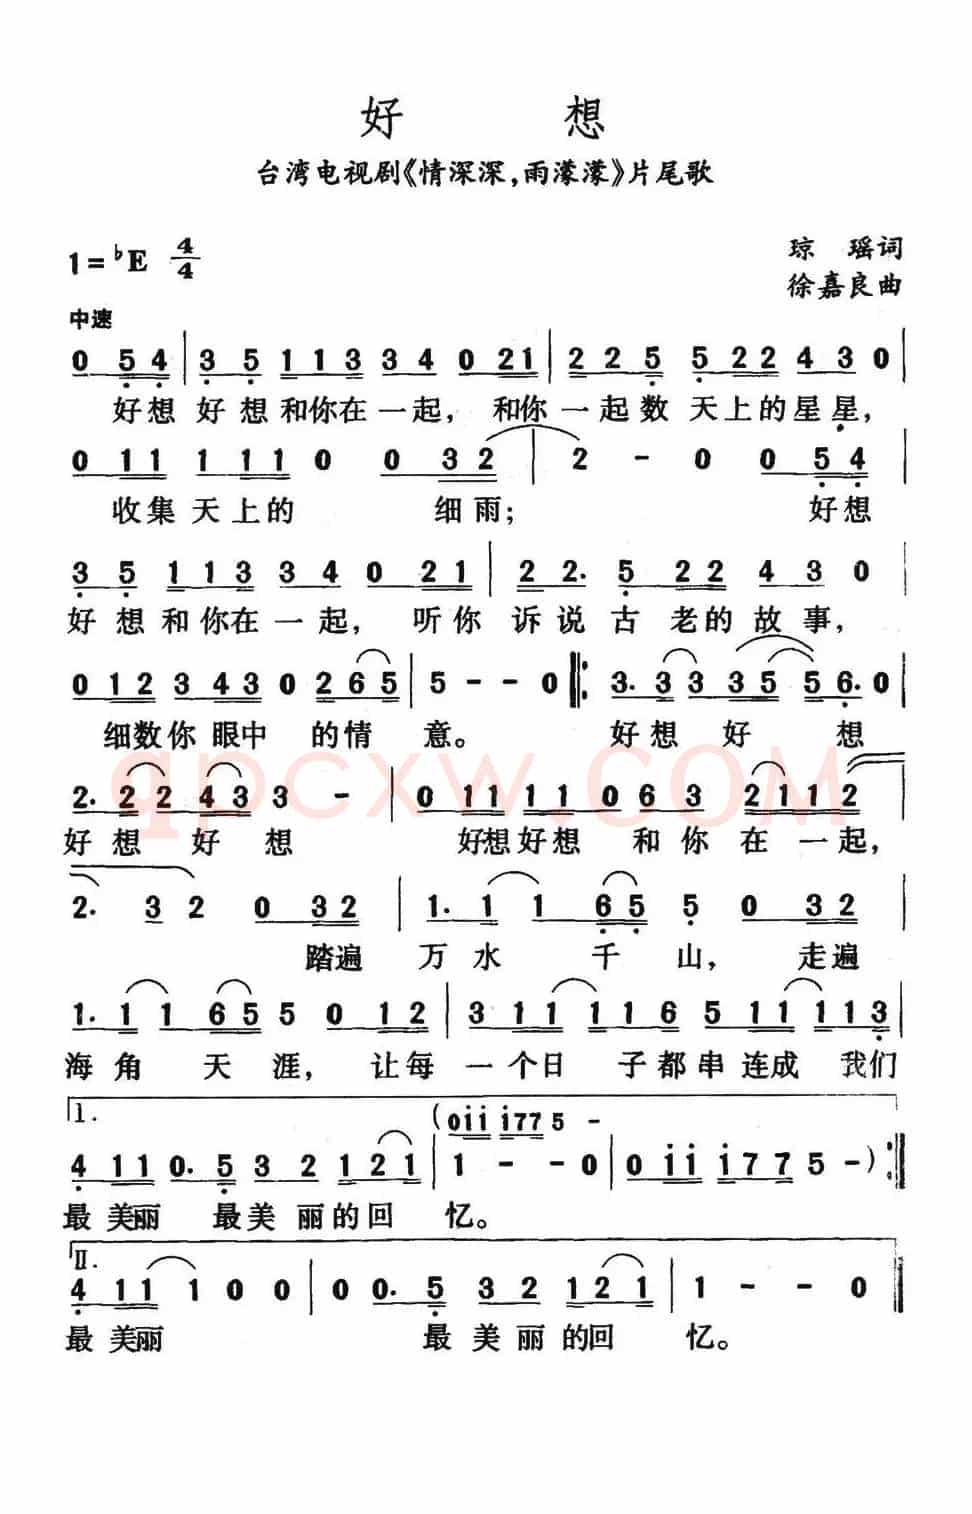 好 想
台湾电视剧《情深深,雨濛濛》片尾歌
1=♭E 4/4
琼 瑶词
徐嘉良曲
中速
0 5 4 | 3 5 1 1 3 3 4 0 2 1 | 2 2 5 5 2 2 4 3 0 |
好想 好 想和你在一起, 和你一起数 天上的星星,
0 1 1 1 1 1 0 0 3 2 | 2 - 0 0 5 4 |
收集 天上的 细雨; 好想
3 5 1 1 3 3 4 0 2 1 | 2 2. 5 2 2 4 3 0 |
好 想 和你在一起, 听你 诉说 古 老的 故事,
0 1 2 3 4 3 0 2 6 5 | 5 - - 0 ‖: 3. 3 3 3 5 5 6. 0 |
细数你 眼中 的情 意。 好想 好 想
2. 2 2 4 3 3 - | 0 1 1 1 1 0 6 3 2 1 1 2 |
好 想 好 想 好想好想 和你在一起,
2. 3 2 0 3 2 | 1. 1 1 6 5 5 0 3 2 |
踏遍 万水 千 山, 走遍
1. 1 1 6 5 5 0 1 2 | 3 1 1 1 1 6 5 1 1 1 1 3 |
海角 天 涯, 让每 一个日 子都串连成 我们
1. (0 i i i 7 7 5 -
4 1 1 0. 5 3 2 1 2 1 | 1 - - 0 | 0 i i i 7 7 5 - ) :‖
最 美丽 最美 丽的回 忆。
II.
4 1 1 1 0 0 | 0 0. 5 3 2 1 2 1 | 1 - - 0 ‖
最 美丽 最 美 丽 的回 忆。
qpcxw.COM